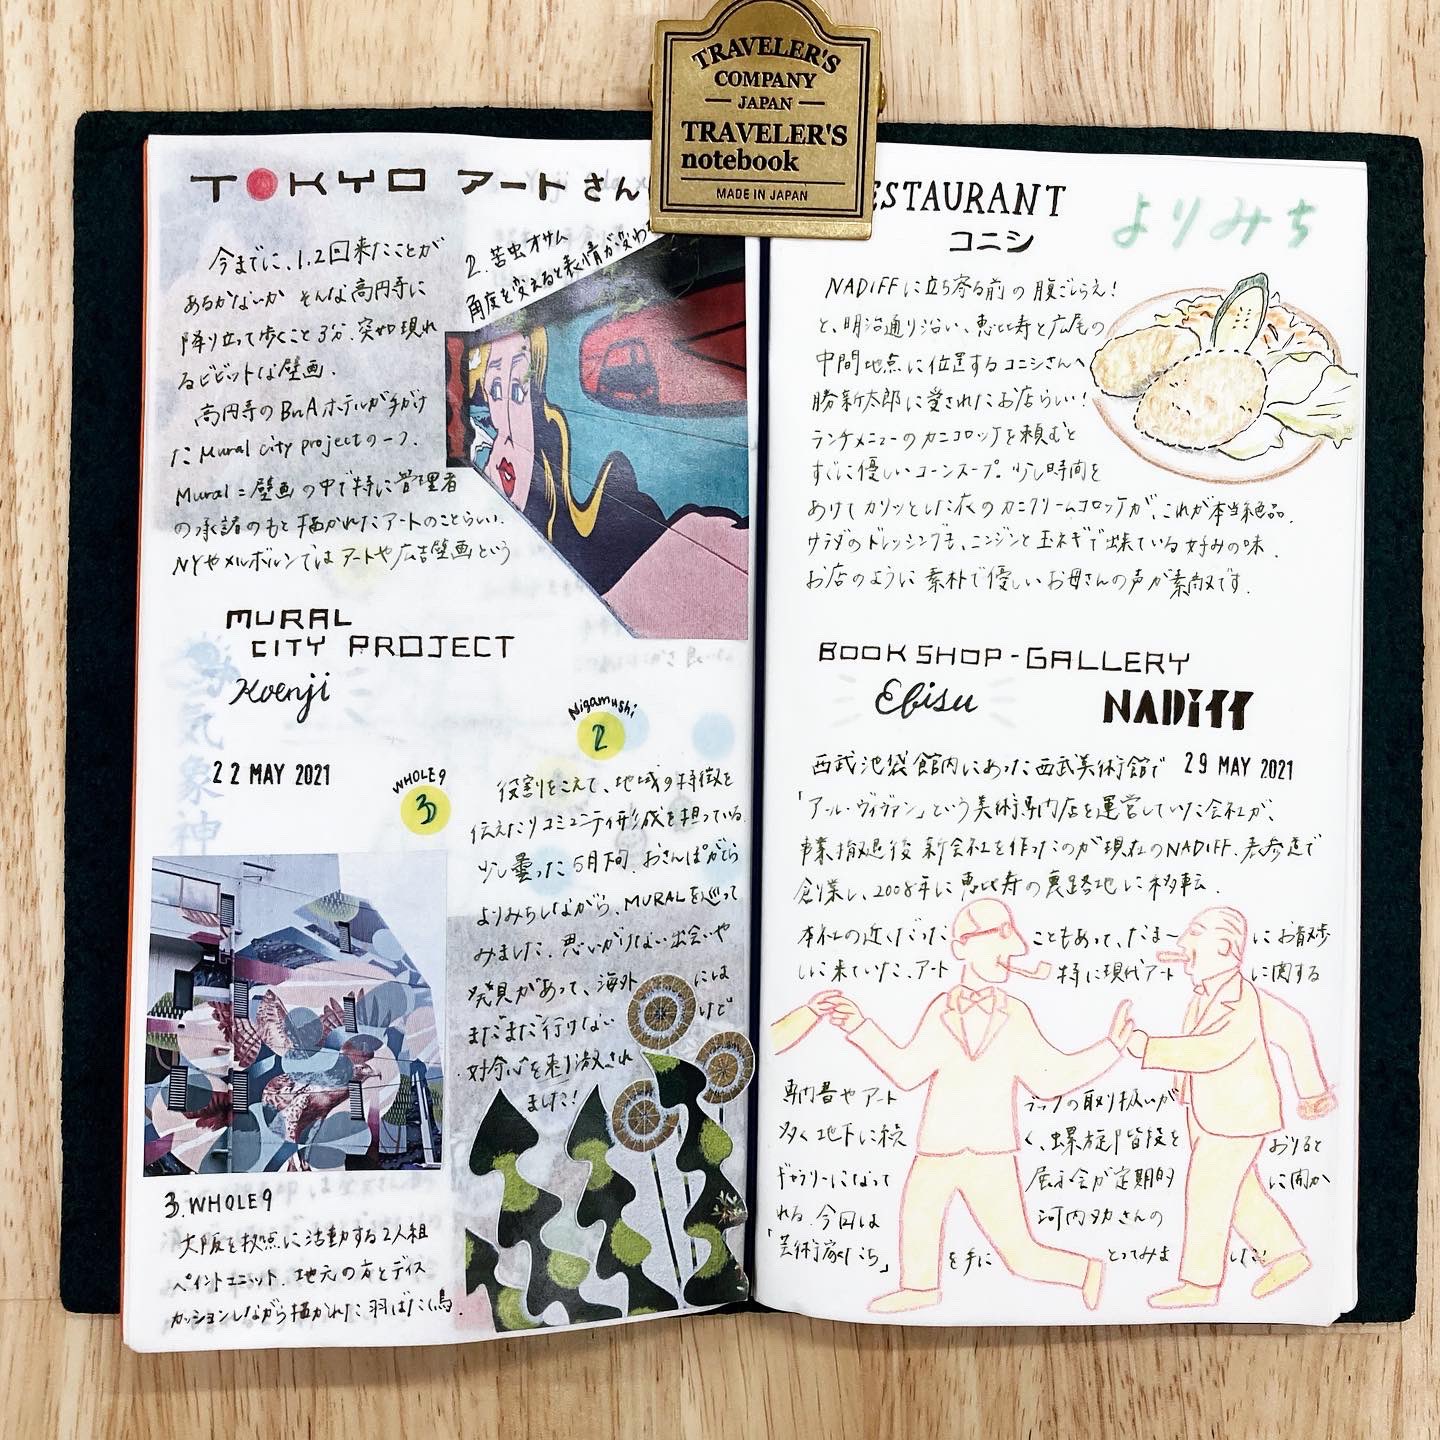 TRAVELER'S
COMPANY
JAPAN
TRAVELER'S
notebook
MADE IN JAPAN
TOKYO アートさん
今までに、1,2回来たことが
あるかないか そんな高円寺に
降り立って歩くこと3分、突如現れ
るビビットな壁画.
高円寺のBnAホテルが手がけ
たMural city projectの一つ.
Mural=壁画の中で特に管理者
の承諾のもと描かれたアートのことらしい.
NYやメルボルンではアートや広告壁画という
2.苦虫オサム
角度を変えると表情が変わ
MURAL
CITY PROJECT
Koenji
22 MAY 2021
WHOLE9
3
Nigamushi
2
役割をこえて、地域の特徴を
伝えたりコミュニティ形成を担っている.
少し曇った5月下旬、おさんぽがてら
よりみちしながら、MURALを巡って
みました. 思いがけない出会いや
発見があって、海外 には
まだまだ行けない けど
好奇心を刺激され
ました!
3.WHOLE9
大阪を拠点に活動する2人組
ペイントユニット. 地元の方とディス
カッションしながら描かれた羽ばたく鳥.
ESTAURANT
コニシ
よりみち
NADiFFに立ち寄る前の腹ごしらえ!
と、明治通り沿い、恵比寿と広尾の
中間地点に位置するコニシさんへ
勝新太郎に愛されたお店らしい!
ランチメニューのカニコロッケを頼むと
すぐに優しいコーンスープ。少し時間を
あけてカリッとした衣のカニクリームコロッケが、これが本当絶品.
サラダのドレッシングも、ニンジンと玉ネギで出来ている好みの味.
お店のように素朴で優しいお母さんの声が素敵です.
BOOK SHOP-GALLERY
Ebisu
NADiff
29 MAY 2021
西武池袋館内にあった西武美術館で
「アール・ヴィヴァン」という美術専門店を運営していた会社が、
事業撤退後新会社を作ったのが現在のNADIFF.表参道で
創業し、2008年に恵比寿の裏路地に移転.
本社の近くだった こともあって、たまー にお散歩
しに来ていた、アート 特に現代アート に関する
専門書やアート ブックの取り扱いが
多く地下に続 く、螺旋階段を おりると
ギャラリーになって 展示会が定期的 に開か
れる.今回は 河内タカさんの
「芸術家たち」 を手に とってみま した!